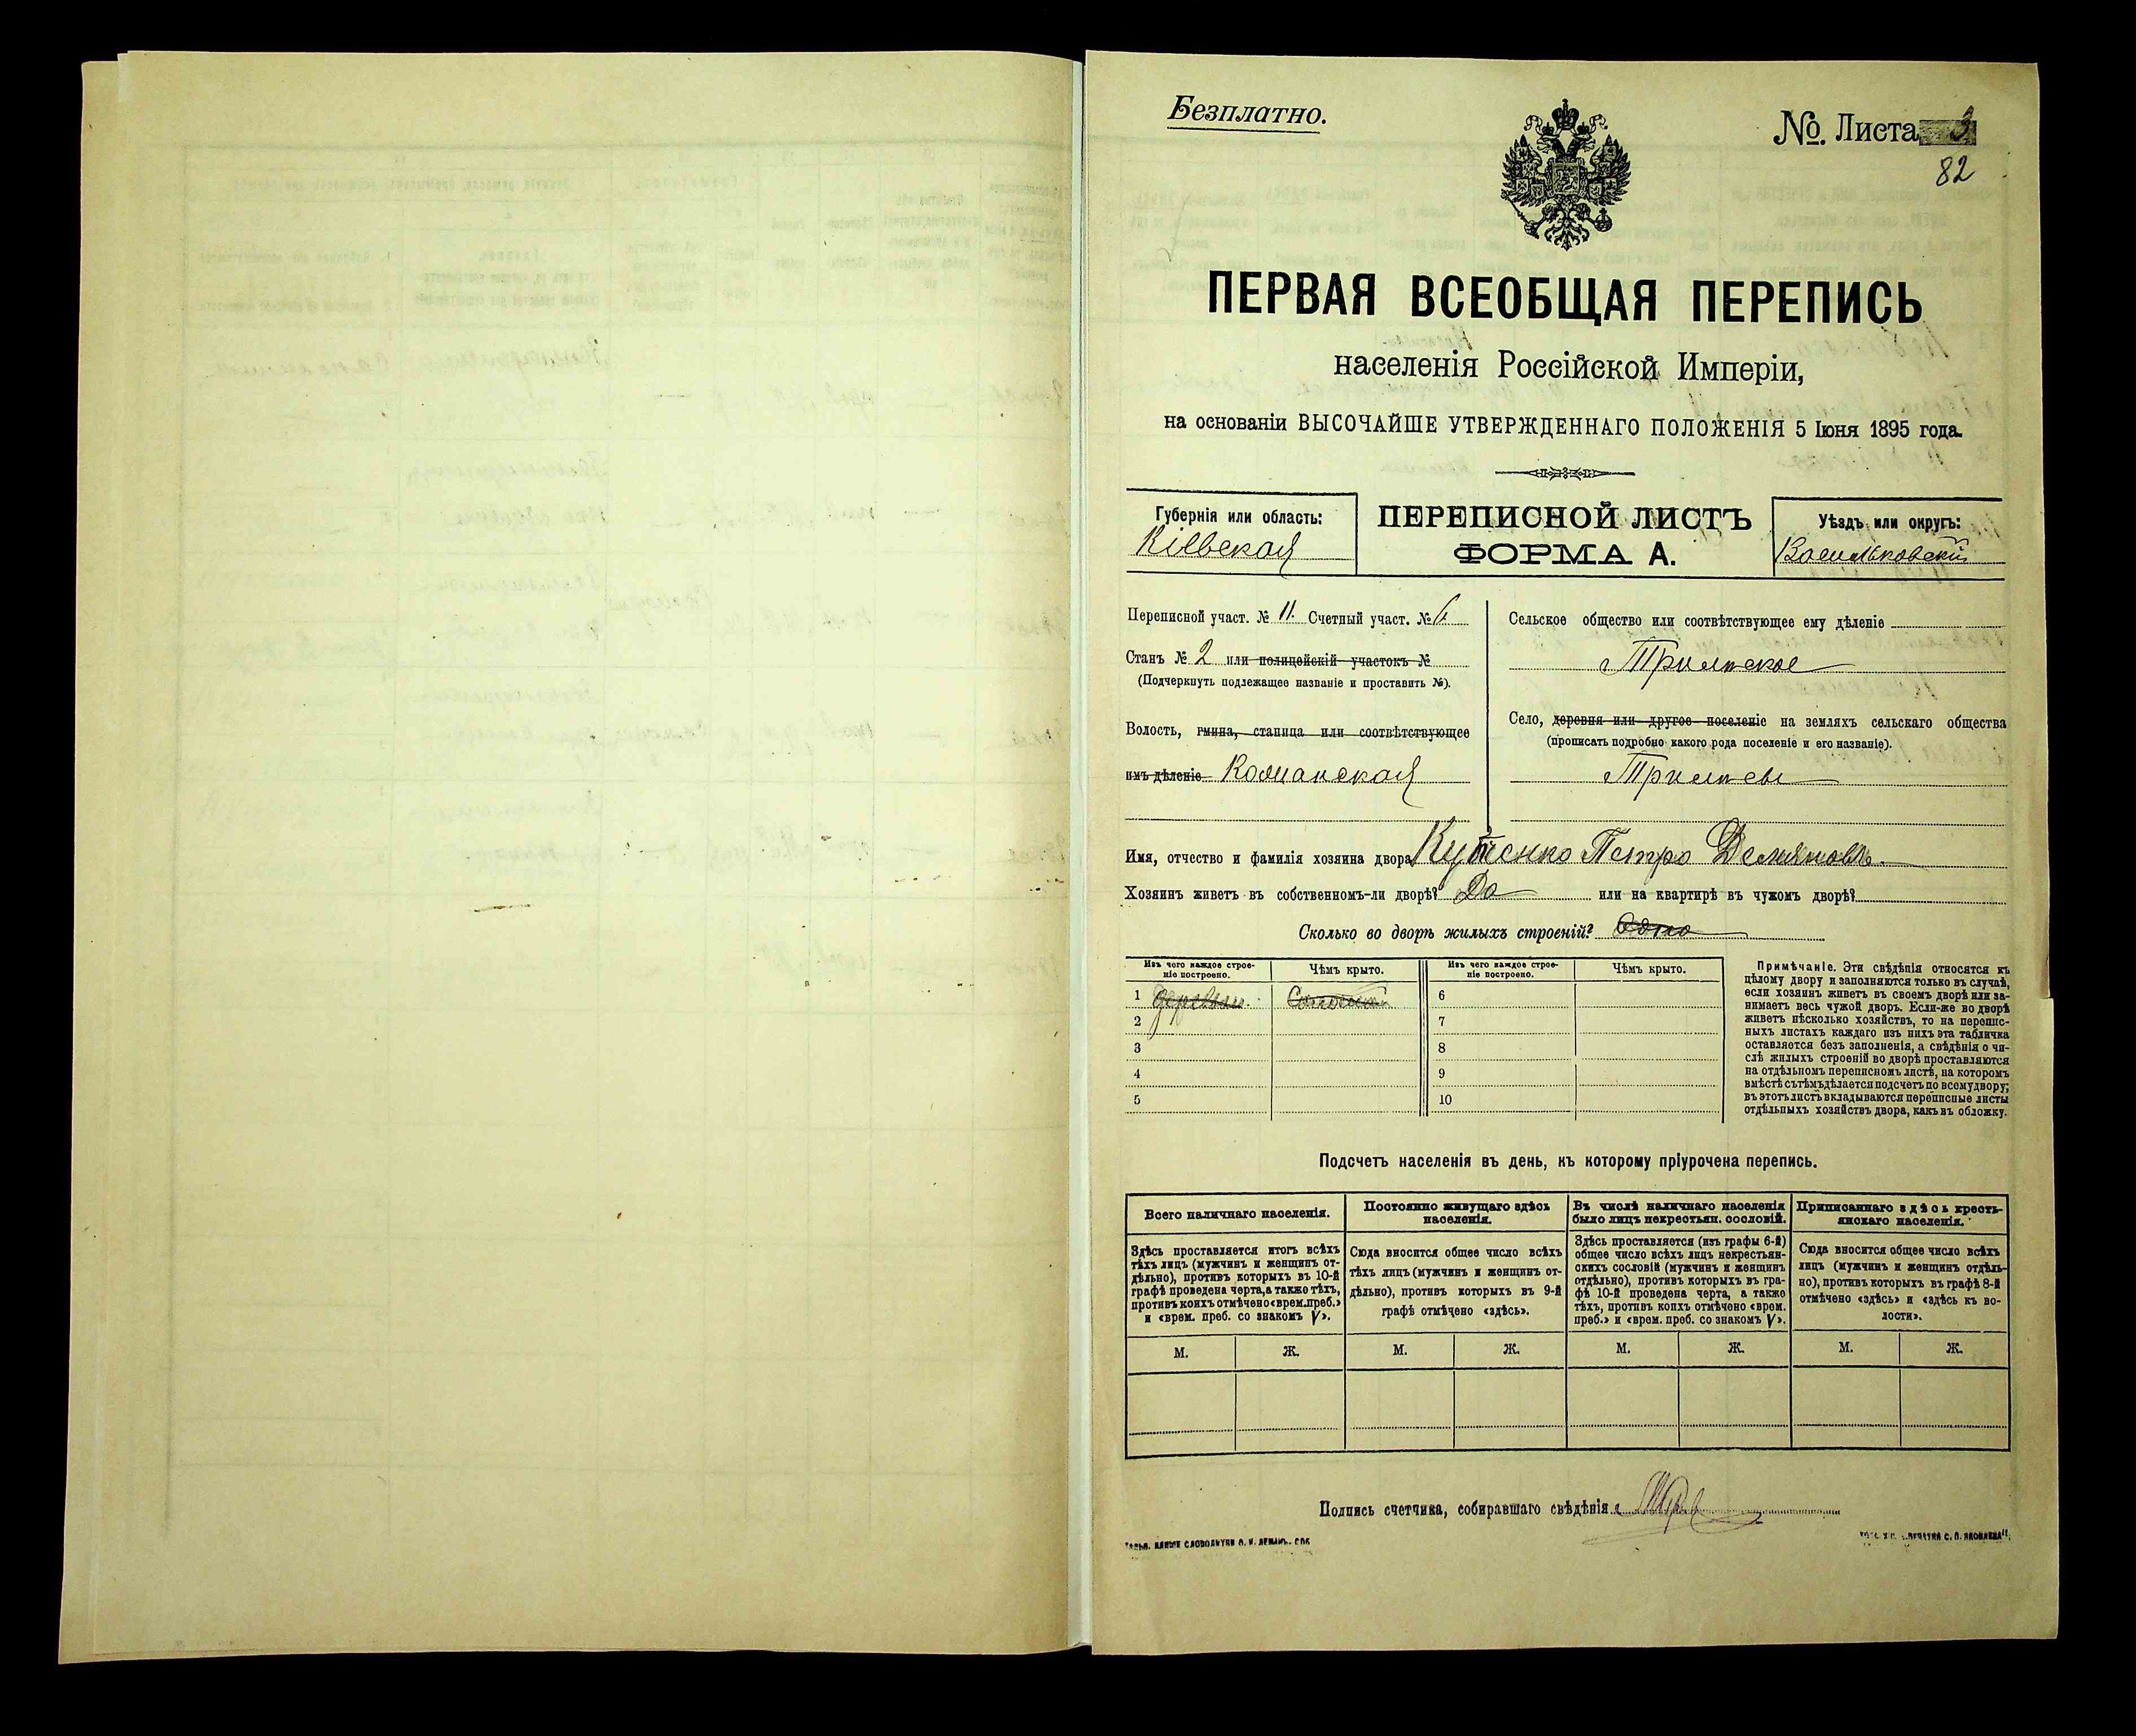 Безплатно.
№. Листа 3
82
ПЕРВАЯ ВСЕОБЩАЯ ПЕРЕПИСЬ
населенія Россійской Имперіи,
на основаніи ВЫСОЧАЙШЕ УТВЕРЖДЕННАГО ПОЛОЖЕНІЯ 5 Іюня 1895 года.
Губернія или область:
Кіевская
ПЕРЕПИСНОЙ ЛИСТЪ
ФОРМА А.
Уѣздъ или округъ:
Васильковскій
Переписной участ. № 11. Счетный участ. №
Станъ № 2 или полицейскій участокъ №
(Подчеркнуть подлежащее названіе и проставить №).
Волость, гмина, станица или соотвѣтствующее
имъ дѣленіе Кожанская
Сельское общество или соотвѣтствующее ему дѣленіе
Трилѣское
Село, деревня или другое поселеніе на земляхъ сельскаго общества
(прописать подробно какого рода поселеніе и его названіе).
Трилѣсы
Имя, отчество и фамилія хозяина двора Петро Демяновъ
Хозяинъ живетъ въ собственномъ-ли дворѣ? Да или на квартирѣ въ чужомъ дворѣ?
Сколько во дворѣ жилыхъ строеній? Одно
Изъ чего каждое строе-
ніе построено.
Чѣмъ крыто.
Изъ чего каждое строе-
ніе построено.
Чѣмъ крыто.
1 деревян. Соломой
2
3
4
5
6
7
8
9
10
Примѣчаніе. Эти свѣдѣнія относятся къ
цѣлому двору и заполняются только въ случаѣ,
если хозяинъ живетъ въ своемъ дворѣ или за-
нимаетъ весь чужой дворъ. Если-же во дворѣ
живетъ нѣсколько хозяйствъ, то на перепис-
ныхъ листахъ каждаго изъ нихъ эта табличка
оставляется безъ заполненія, а свѣдѣнія о чи-
слѣ жилыхъ строеній во дворѣ проставляются
на отдѣльномъ переписномъ листѣ, на которомъ
вмѣстѣ съ тѣмъ дѣлается подсчетъ по всему двору;
въ этотъ листъ вкладываются переписные листы
отдѣльныхъ хозяйствъ двора, какъ въ обложку.
Подсчетъ населенія въ день, къ которому пріурочена перепись.
Всего наличнаго населенія.
Здѣсь проставляется итогъ всѣхъ
тѣхъ лицъ (мужчинъ и женщинъ от-
дѣльно), противъ которыхъ въ 10-й
графѣ проведена черта, а также тѣхъ,
противъ коихъ отмѣчено «врем. преб.»
и «врем. преб. со знакомъ V».
Постоянно живущаго здѣсь
населенія.
Сюда вносится общее число всѣхъ
тѣхъ лицъ (мужчинъ и женщинъ от-
дѣльно), противъ которыхъ въ 9-й
графѣ отмѣчено «здѣсь».
Въ числѣ наличнаго населенія
было лицъ некрестьян. сословій.
Здѣсь проставляется (изъ графы 6-й)
общее число всѣхъ лицъ некрестьян-
скихъ сословій (мужчинъ и женщинъ
отдѣльно), противъ которыхъ въ гра-
фѣ 10-й проведена черта, а также
тѣхъ, противъ коихъ отмѣчено «врем.
преб.» и «врем. преб. со знакомъ V».
Приписаннаго здѣсь кресть-
янскаго населенія.
Сюда вносится общее число всѣхъ
лицъ (мужчинъ и женщинъ отдѣль-
но), противъ которыхъ въ графѣ 8-й
отмѣчено «здѣсь» и «здѣсь къ во-
лости».
М. Ж. М. Ж. М. Ж. М. Ж.
Подпись счетчика, собиравшаго свѣдѣнія